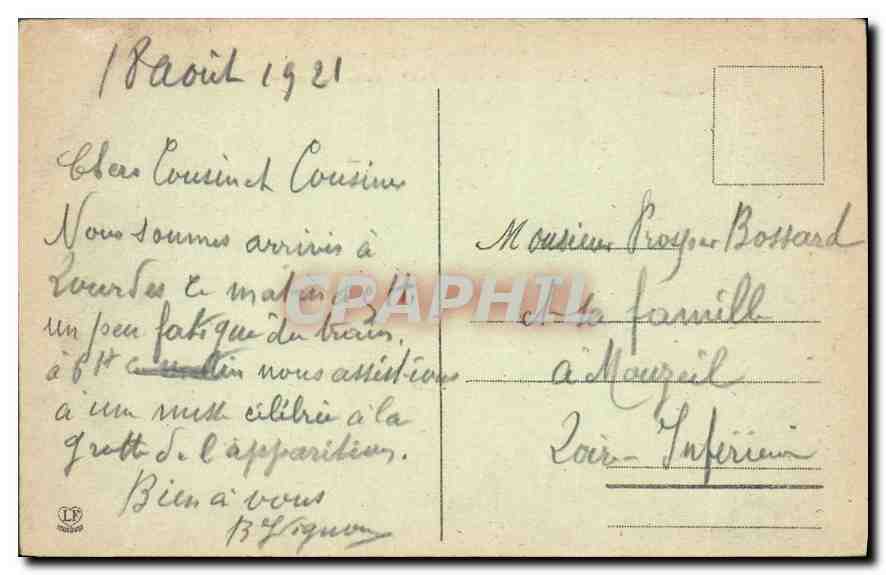 18 août 1921
Chers Cousin et Cousine
Nous sommes arrivés à
Lourdes ce matin à 5H
un peu fatigué du train.
à 6H ce matin nous assistions
à une messe célébrée à la
grotte de l'apparition.
Bien à vous
B Vignon
Monsieur Prosper Bossard
et sa famille
à Mouzeil
Loire-Inférieure
CPAPHIL
LF